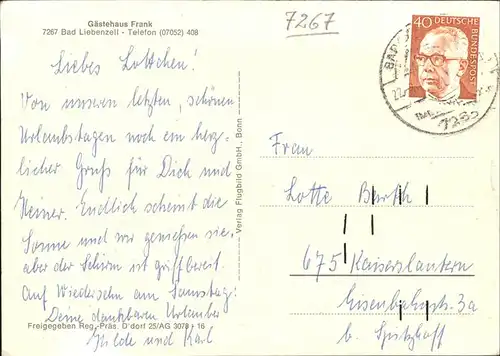 Gästehaus Frank
7267 Bad Liebenzell - Telefon (07052) 408
7267
40 DEUTSCHE BUNDESPOST
BAD
7263
Liebes Lottchen!
Von unseren letzten, schönen
Urlaubstagen noch ein herz-
licher Gruß für Dich und
Heiner. Endlich scheint die
Sonne und wir genießen sie,
aber der Schirm ist griffbereit.
Auf Wiedersehn am Samstag!
Deine dankbaren Urlauber
Hilde und Karl
Freigegeben Reg.-Präs. D'dorf 25/AG 3078 - 16
Verlag Flugbild GmbH., Bonn
Frau
Lotte Barth
675 Kaiserslautern
Eisenbahnstr. 3a
b. Spitzhoff